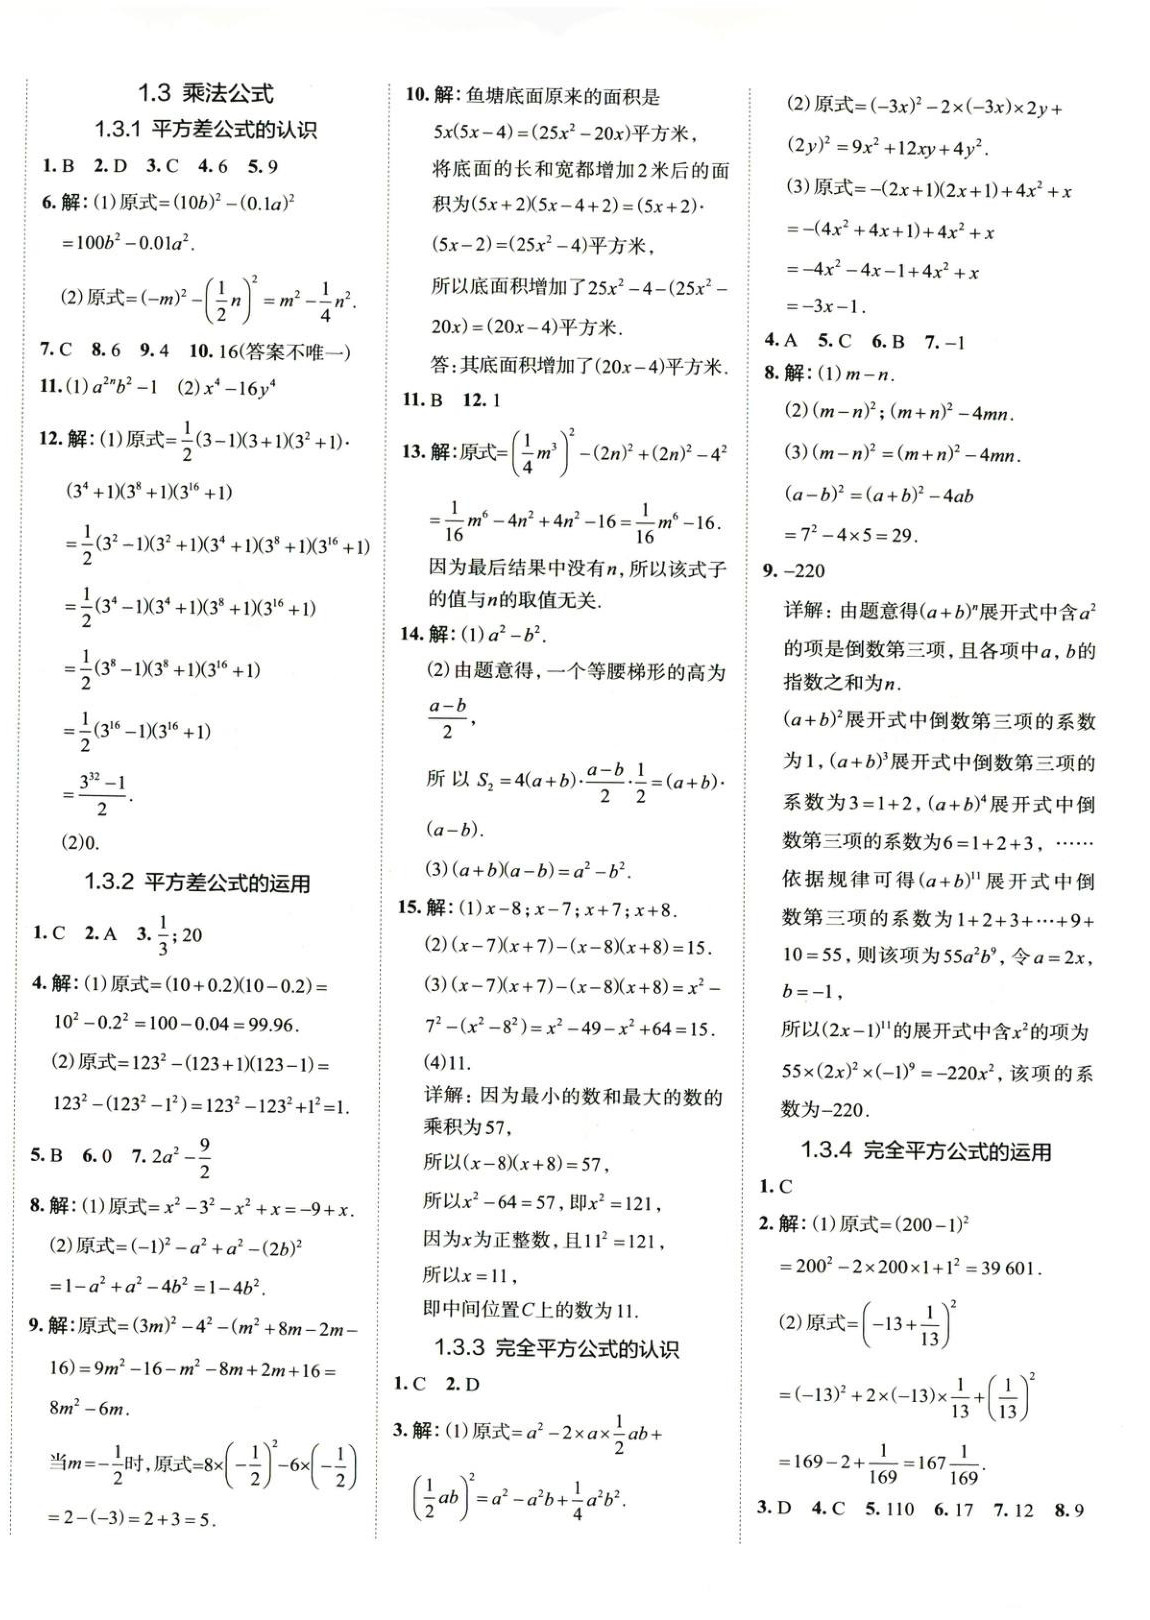 1.3 乘法公式
1.3.1 平方差公式的认识
1. B 2. D 3. C 4. 6 5. 9
6. 解：(1)原式=(10b)²-(0.1a)²
=100b²-0.01a².
(2)原式=(-m)²-(1/2 n)²=m²-1/4 n².
7. C 8. 6 9. 4 10. 16(答案不唯一)
11. (1) a²ⁿb²-1 (2) x⁴-16y⁴
12. 解：(1)原式=1/2(3-1)(3+1)(3²+1)·
(3⁴+1)(3⁸+1)(3¹⁶+1)
=1/2(3²-1)(3²+1)(3⁴+1)(3⁸+1)(3¹⁶+1)
=1/2(3⁴-1)(3⁴+1)(3⁸+1)(3¹⁶+1)
=1/2(3⁸-1)(3⁸+1)(3¹⁶+1)
=1/2(3¹⁶-1)(3¹⁶+1)
=(3³²-1)/2.
(2)0.
1.3.2 平方差公式的运用
1. C 2. A 3. 1/3; 20
4. 解：(1)原式=(10+0.2)(10-0.2)=
10²-0.2²=100-0.04=99.96.
(2)原式=123²-(123+1)(123-1)=
123²-(123²-1²)=123²-123²+1²=1.
5. B 6. 0 7. 2a²-9/2
8. 解：(1)原式=x²-3²-x²+x=-9+x.
(2)原式=(-1)²-a²+a²-(2b)²
=1-a²+a²-4b²=1-4b².
9. 解：原式=(3m)²-4²-(m²+8m-2m-
16)=9m²-16-m²-8m+2m+16=
8m²-6m.
当m=-1/2时，原式=8×(-1/2)²-6×(-1/2)
=2-(-3)=2+3=5.
10. 解：鱼塘底面原来的面积是
5x(5x-4)=(25x²-20x)平方米，
将底面的长和宽都增加2米后的面
积为(5x+2)(5x-4+2)=(5x+2)·
(5x-2)=(25x²-4)平方米，
所以底面积增加了25x²-4-(25x²-
20x)=(20x-4)平方米.
答：其底面积增加了(20x-4)平方米.
11. B 12. 1
13. 解：原式=(1/4 m³)²-(2n)²+(2n)²-4²
=1/16 m⁶-4n²+4n²-16=1/16 m⁶-16.
因为最后结果中没有n，所以该式子
的值与n的取值无关.
14. 解：(1) a²-b².
(2)由题意得，一个等腰梯形的高为
(a-b)/2，
所以 S₂=4(a+b)·(a-b)/2·1/2=(a+b)·
(a-b).
(3)(a+b)(a-b)=a²-b².
15. 解：(1) x-8; x-7; x+7; x+8.
(2)(x-7)(x+7)-(x-8)(x+8)=15.
(3)(x-7)(x+7)-(x-8)(x+8)=x²-
7²-(x²-8²)=x²-49-x²+64=15.
(4)11.
详解：因为最小的数和最大的数的
乘积为57，
所以(x-8)(x+8)=57，
所以x²-64=57，即x²=121，
因为x为正整数，且11²=121，
所以x=11，
即中间位置C上的数为11.
1.3.3 完全平方公式的认识
1. C 2. D
3. 解：(1)原式=a²-2×a×1/2 ab+
(1/2 ab)²=a²-a²b+1/4 a²b².
(2)原式=(-3x)²-2×(-3x)×2y+
(2y)²=9x²+12xy+4y².
(3)原式=-(2x+1)(2x+1)+4x²+x
=-(4x²+4x+1)+4x²+x
=-4x²-4x-1+4x²+x
=-3x-1.
4. A 5. C 6. B 7. -1
8. 解：(1) m-n.
(2)(m-n)²; (m+n)²-4mn.
(3)(m-n)²=(m+n)²-4mn.
(a-b)²=(a+b)²-4ab
=7²-4×5=29.
9. -220
详解：由题意得(a+b)ⁿ展开式中含a²
的项是倒数第三项，且各项中a，b的
指数之和为n.
(a+b)²展开式中倒数第三项的系数
为1，(a+b)³展开式中倒数第三项的
系数为3=1+2，(a+b)⁴展开式中倒
数第三项的系数为6=1+2+3，……
依据规律可得(a+b)¹¹展开式中倒
数第三项的系数为1+2+3+…+9+
10=55，则该项为55a²b⁹，令a=2x，
b=-1，
所以(2x-1)¹¹的展开式中含x²的项为
55×(2x)²×(-1)⁹=-220x²，该项的系
数为-220.
1.3.4 完全平方公式的运用
1. C
2. 解：(1)原式=(200-1)²
=200²-2×200×1+1²=39 601.
(2)原式=(-13+1/13)²
=(-13)²+2×(-13)×1/13+(1/13)²
=169-2+1/169=167 1/169.
3. D 4. C 5. 110 6. 17 7. 12 8. 9